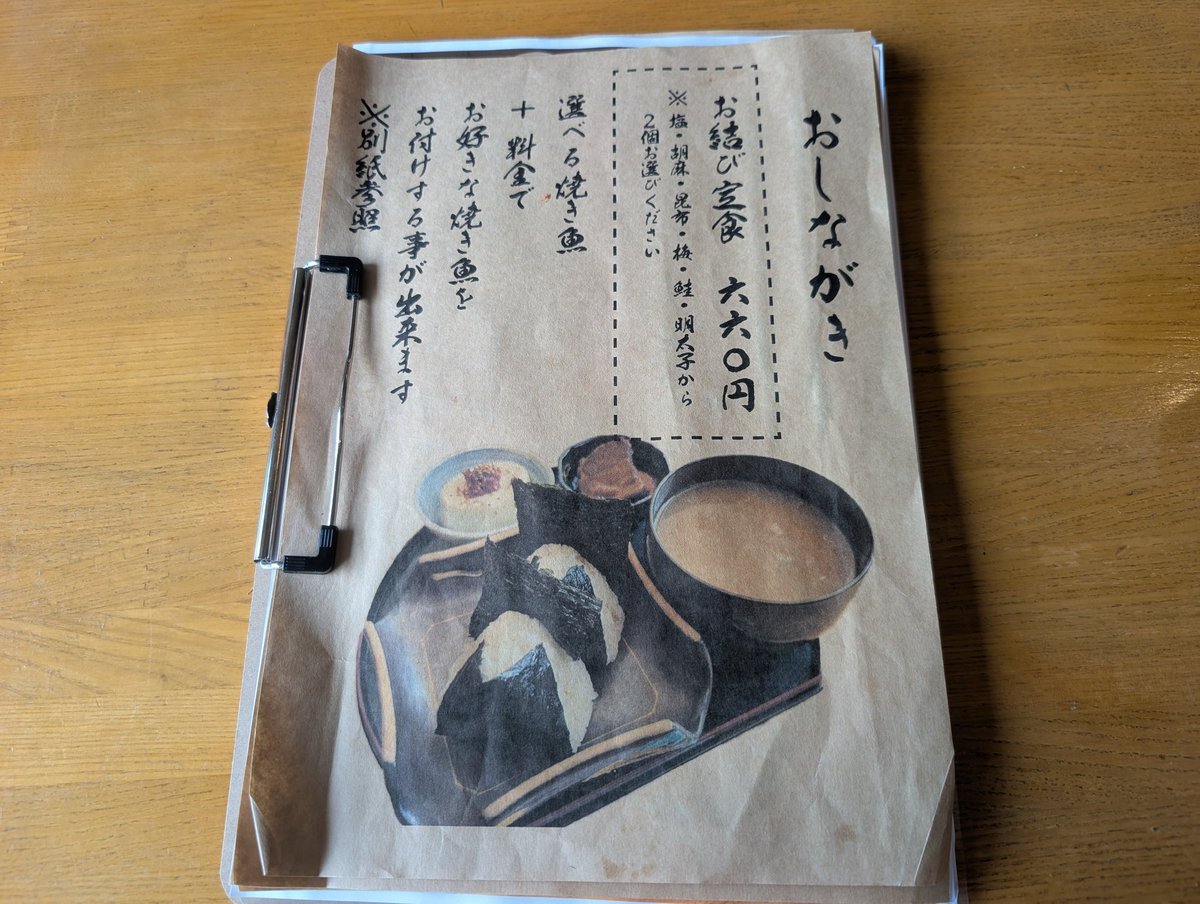 おしながき
お結び定食 六六〇円
※塩・胡麻・昆布・梅・鮭・明太子から
2個お選びください
選べる焼き魚
＋料金で
お好きな焼き魚を
お付けする事が出来ます
※別紙参照